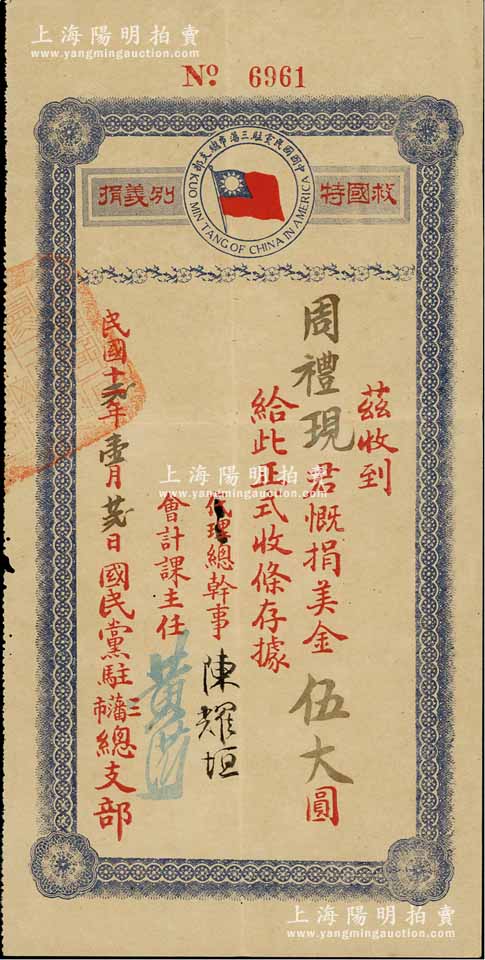 上海陽明拍賣
www.yangmingauction.com
No 6961
中國國民黨駐三藩市總支部
KUO MIN TANG OF CHINA IN AMERICA
救國特別義捐
茲收到
周禮現君慨捐美金伍大圓
給此正式收條存據
代理總幹事 陳耀垣
會計課主任
民國十弍年壹月廿日國民黨駐三藩市總支部
上海陽明拍賣
www.yangmingauction.com
上海陽明拍賣
www.yangmingauction.com